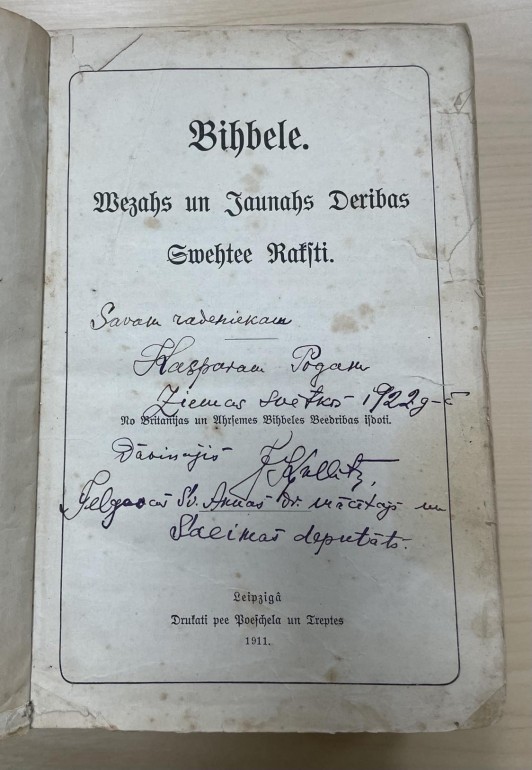 Bihbele.
Wezahs un Jaunahs Deribas
Swehtee Rakſti.
Savam radeniekam
Kasparam Pogam
Ziemas svētkos 1922 g-ē
No Britanijas un Ahrſemes Bihbeles Beedribas iſdoti.
Dāvinājis J Kallitz,
Jelgavas Sv. Annas dr. mācitajs un
Saeimas deputāts.
Leipzigâ
Drukati pee Poeſchela un Treptes
1911.